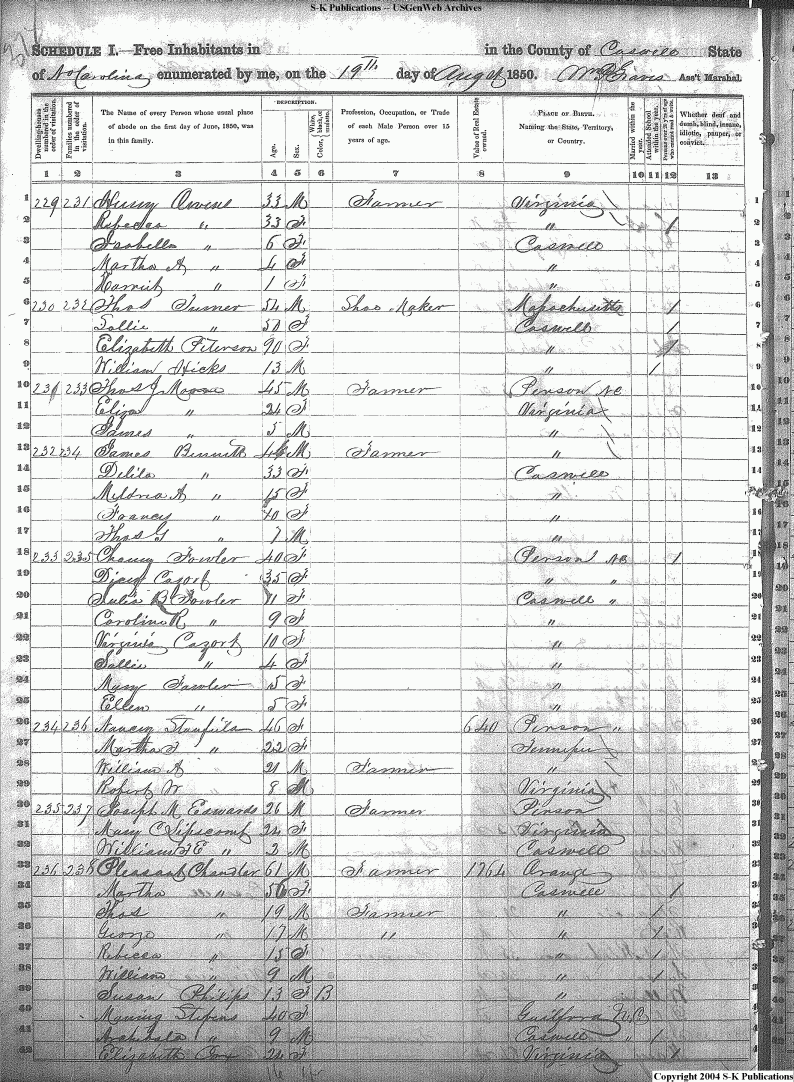 S-K Publications -- USGenWeb Archives
SCHEDULE I.—Free Inhabitants in in the County of Caswell State
of No Carolina enumerated by me, on the 19th day of August 1850. Wm P Evans Ass't Marshal.
Dwelling-houses numbered in the order of visitation.
Families numbered in the order of visitation.
The Name of every Person whose usual place of abode on the first day of June, 1850, was in this family.
DESCRIPTION.
Age.
Sex.
White, black, or mulatto.
Color,
Profession, Occupation, or Trade of each Male Person over 15 years of age.
Value of Real Estate owned.
PLACE OF BIRTH. Naming the State, Territory, or Country.
Married within the year.
Attended School within the year.
Persons over 20 y'rs of age who cannot read & write.
Whether deaf and dumb, blind, insane, idiotic, pauper, or convict.
1 2 3 4 5 6 7 8 9 10 11 12 13
1 229 231 Henry Owens 33 M Farmer Virginia 1
2 Rebecca " 33 F " / 2
3 Isabella " 6 F Caswell 3
4 Martha A " 4 F " 4
5 Harriet " 1 F " 5
6 230 232 Thos Turner 54 M Shoe Maker Massachusetts / 6
7 Sallie " 50 F Caswell / 7
8 Elizabeth Peterson 90 F " 1 8
9 William Hicks 13 M " / 9
10 231 233 Thos J 45 M Farmer Person NC 10
11 Eliza " 24 F Virginia 11
12 James " 5 M " 12
13 232 234 James Bennett 46 M Farmer " 13
14 Delila " 33 F Caswell 14
15 Mildria A " 15 F " 15
16 Frances " 10 F " 16
17 Thos G " 7 M " 17
18 233 235 Chaney Fowler 40 F Person NC / 18
19 Dicey Cazort 35 F " " 19
20 Julia B Fowler 11 F Caswell " 20
21 Caroline R " 9 F " 21
22 Virginia Cazort 10 F " 22
23 Sallie " 4 F " 23
24 Mary Fowler 5 F " 24
25 Ellen " 5 F " 25
26 234 236 Nancy Stanfield 46 F 640 Person " 26
27 Martha F " 22 F 27
28 William A " 21 M Farmer " 28
29 Robert W " 8 M Virginia 29
30 235 237 Joseph M Edwards 26 M Farmer Person 30
31 Mary C Lipscomb 24 F Virginia 31
32 William F E " 2 M Caswell 32
33 236 238 Pleasant Chandler 61 M Farmer 1764 Orange 33
34 Martha " 56 F Caswell / 34
35 Thos " 19 M Farmer " / 35
36 George " 17 M " " / 36
37 Rebecca " 15 F " / 37
38 William " 9 M " / 38
39 Susan Philips 13 F B " 39
40 Stephens 40 F Guilford N.C. 40
41 Archibald " 9 M Caswell " / 41
42 Elizabeth Cox 24 F Virginia / 42
Copyright 2004 S-K Publications